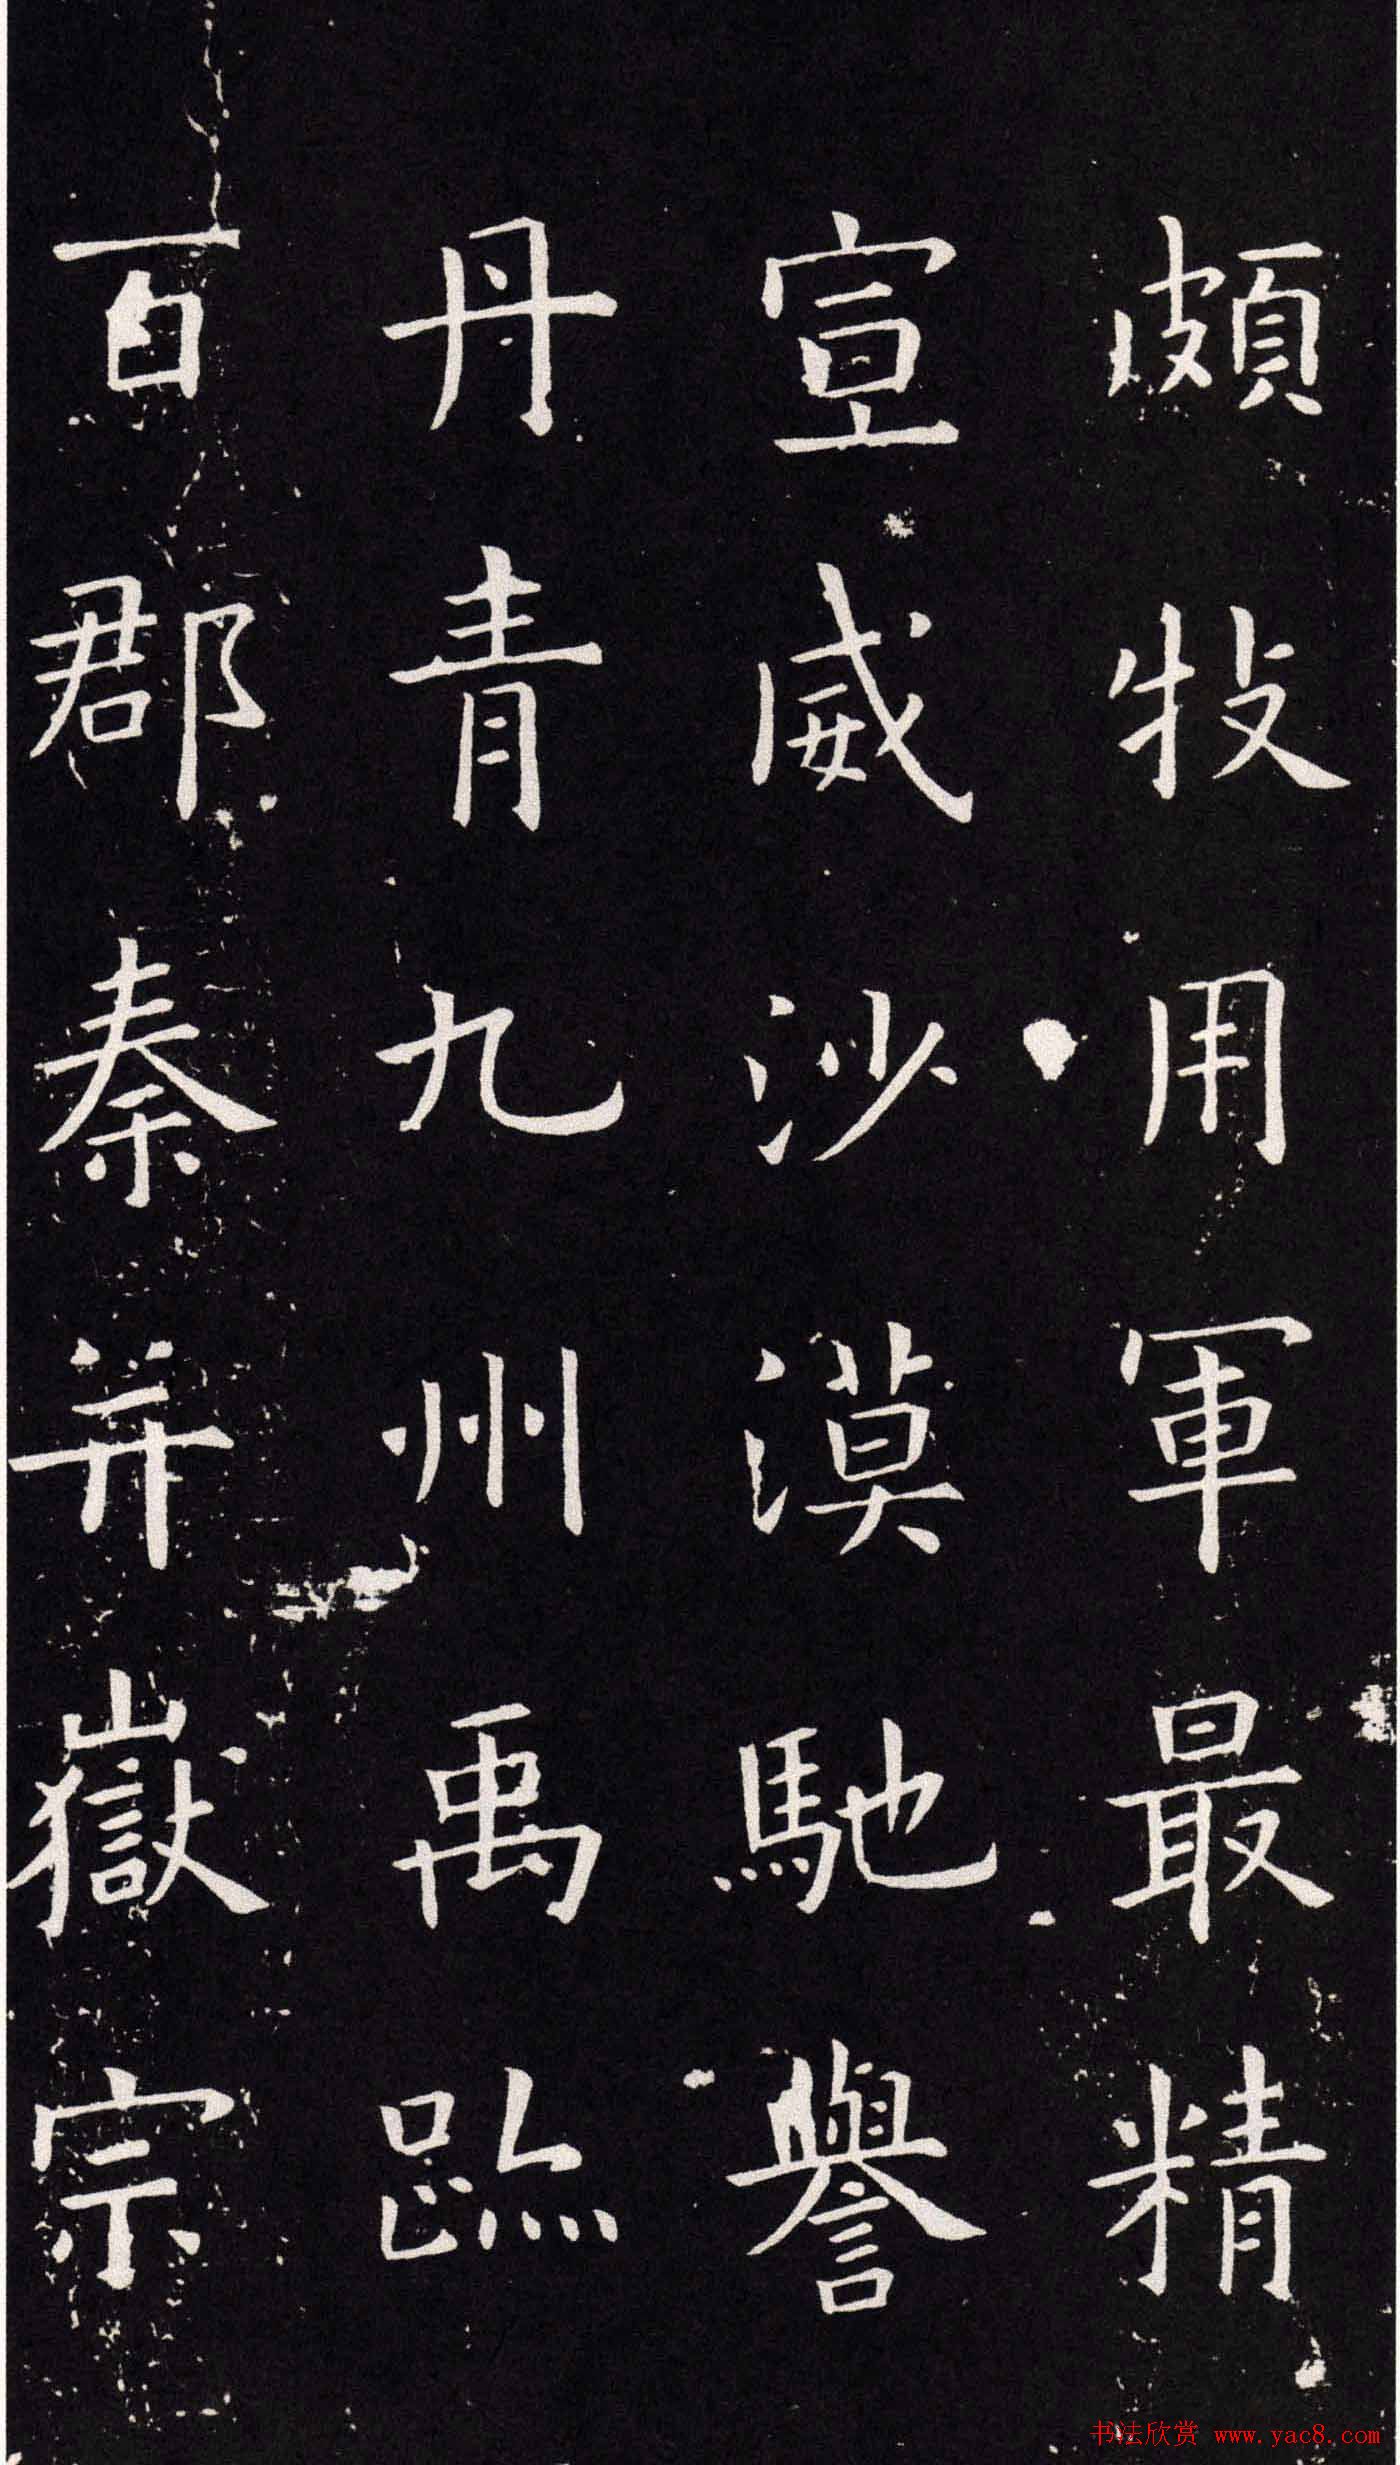 頗牧用軍最精
宣威沙漠馳譽
丹青九州禹跡
百郡秦并嶽宗
书法欣赏 www.yac8.com